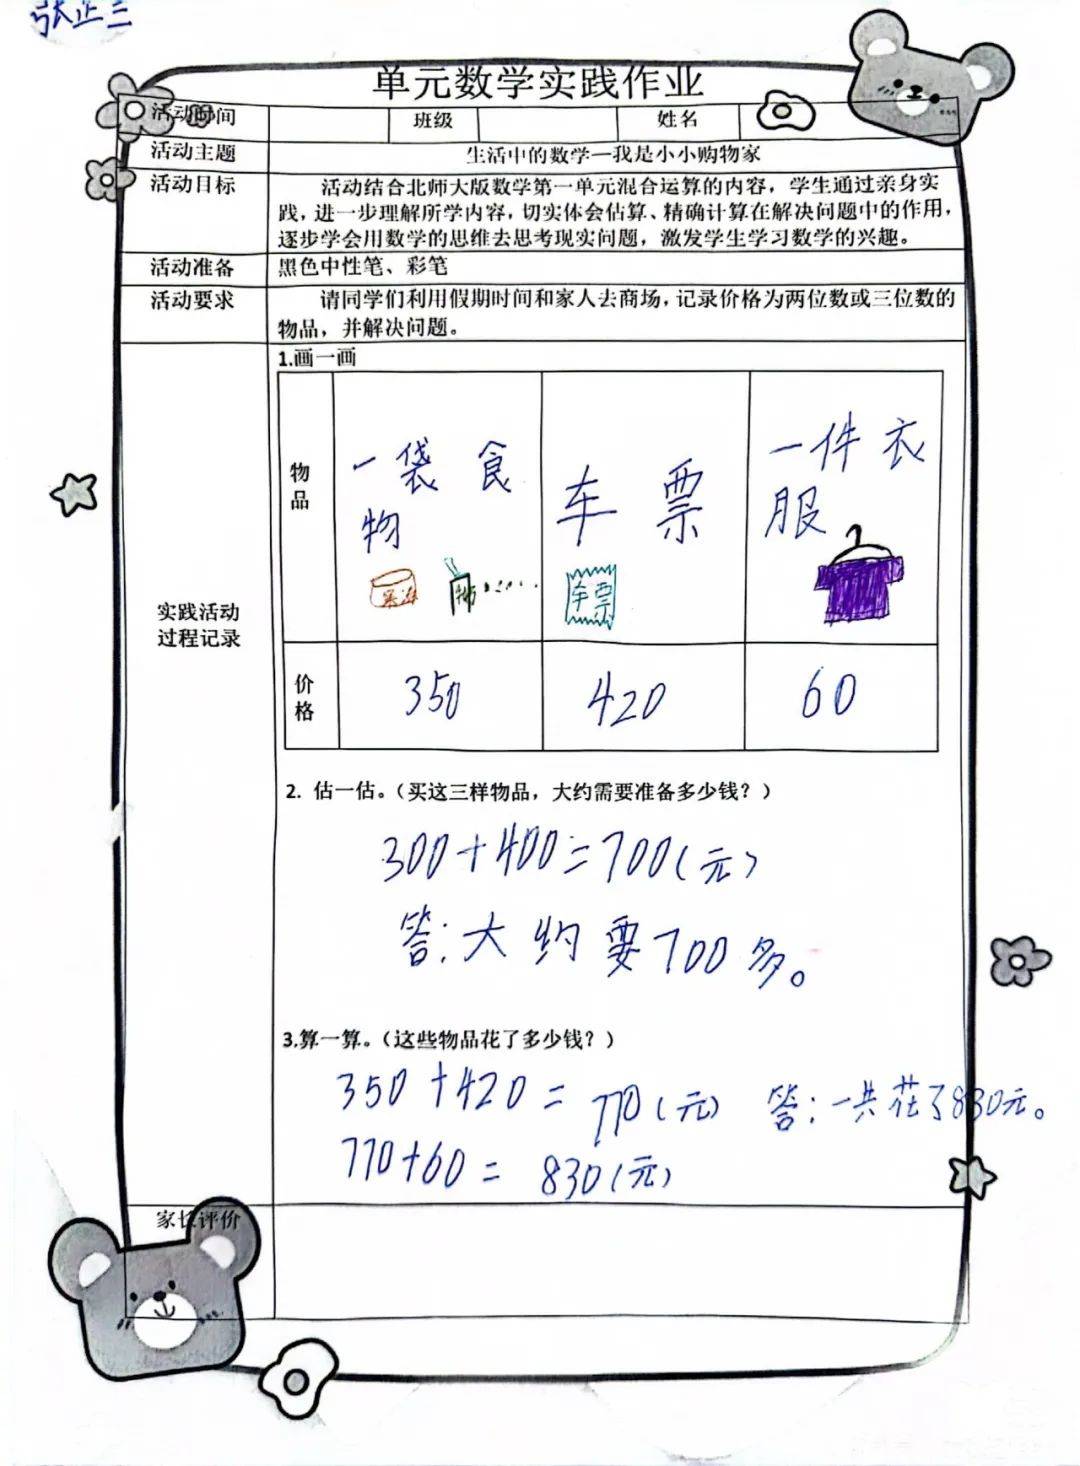 张正三
单元数学实践作业
活动时间 班级 姓名
活动主题 生活中的数学—我是小小购物家
活动目标 活动结合北师大版数学第一单元混合运算的内容，学生通过亲身实
践，进一步理解所学内容，切实体会估算、精确计算在解决问题中的作用，
逐步学会用数学的思维去思考现实问题，激发学生学习数学的兴趣。
活动准备 黑色中性笔、彩笔
活动要求 请同学们利用假期时间和家人去商场，记录价格为两位数或三位数的
物品，并解决问题。
实践活动
过程记录
1.画一画
物
品
一袋食
物
车票
车票
一件衣
服
价
格
350 420 60
2. 估一估。（买这三样物品，大约需要准备多少钱？）
300+400=700(元)
答:大约要700多。
3.算一算。（这些物品花了多少钱？）
350+420=770(元) 答:一共花了830元。
770+60=830(元)
家长评价